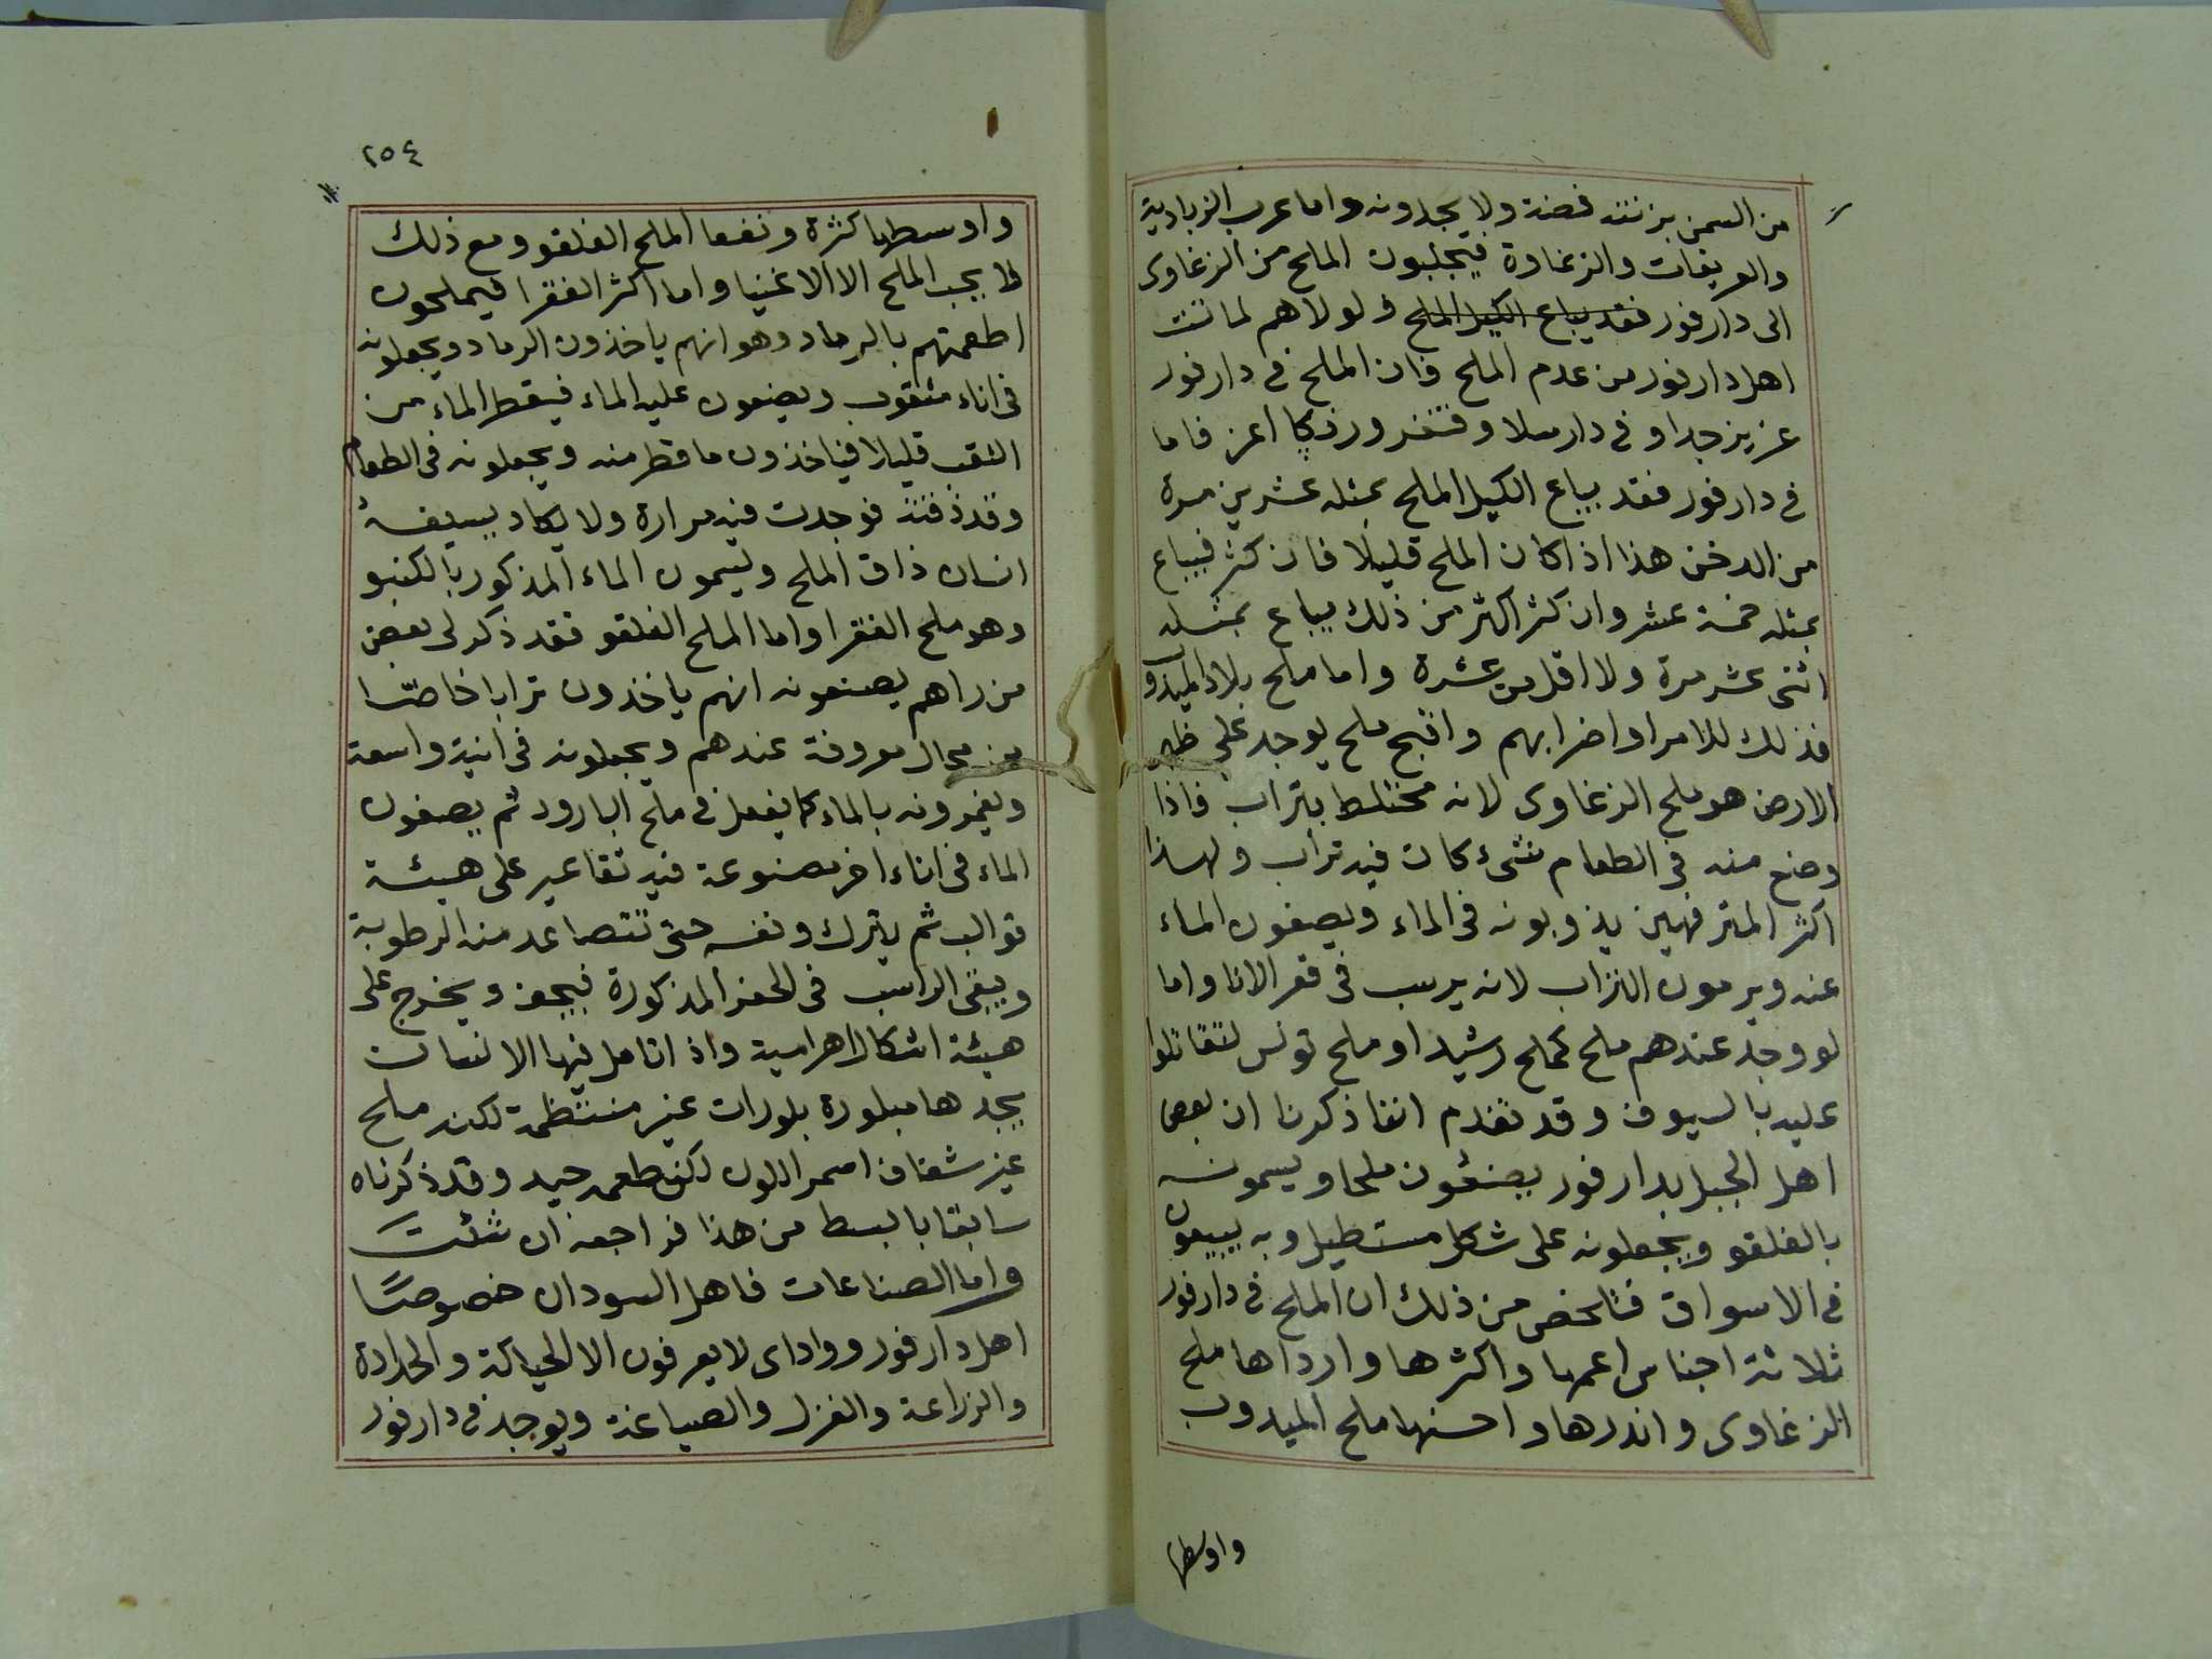 من السمن بزنته فضة ولا يجدونه واما عرب الزيادية
والعريقات والزغاوة فيجلبون الملح من الزغاوى
الى دارفور فقد يباع الكيل الملح ولولاهم لماتت
اهل دارفور من عدم الملح فان الملح فى دارفور
عزيز جدا وفى دار سلا وفنقرو ورنكا اعز فاما
فى دارفور فقد يباع الكيل الملح بمثله عشرين مرة
من الدخن هذا اذا كان الملح قليلا فان كثر فيباع
بمثله خمسة عشر وان كثر اكثر من ذلك يباع بمثله
اثنى عشر مرة ولا اقل من عشرة واما ملح بلاد الميدوب
فذلك للامرا واضرابهم واقبح ملح يوجد على ظهر
الارض هو ملح الزغاوى لانه مختلط بتراب فاذا
وضع منه فى الطعام شىء كان فيه تراب ولهذا
اكثر المترفهين يذوبونه فى الماء ويصفون الماء
عنه ويرمون التراب لانه يرسب فى قعر الانا واما
لو وجد عندهم ملح كملح رشيد او ملح تونس لتقاتلوا
عليه بالسيوف وقد تقدم انفا ذكرنا ان بعض
اهل الجبل بدارفور يصنعون ملحا ويسمونه
بالفلقو ويجعلونه على شكل مستطيل وبه يبيعون
فى الاسواق فتلخص من ذلك ان الملح فى دارفور
ثلاثة اجناس اعمها واكثرها وارداها ملح
الزغاوى واندرها واحسنها ملح الميدوب
واوسطها
٢٥٤
واوسطها كثرة ونفعا الملح الفلقو ومع ذلك
لا يجب الملح الا الاغنيا واما اكثر الفقرا فيملحون
اطعمتهم بالرماد وهو انهم ياخذون الرماد ويجعلونه
فى اناء مثقوب ويضعون عليه الماء فيقطر الماء من
الثقب قليلا فياخذون ما قطر منه ويجعلونه فى الطعام
وقد ذقته فوجدت فيه مرارة ولا يكاد يسيغه
انسان ذاق الملح ويسمون الماء المذكور بالكنبو
وهو ملح الفقرا واما الملح الفلقو فقد ذكر لى بعض
من راهم يصنعونه انهم ياخذون ترابا خاصّا
من محال معروفة عندهم ويجعلونه فى انية واسعة
ويغمرونه بالماء كما يفعل فى ملح البارود ثم يصفون
الماء فى اناء اخر مصنوعة فيه تقاعير على هيئة
قوالب ثم يترك ونفسه حتى تتصاعد منه الرطوبة
ويبقى الراسب فى الحفر المذكورة فيجف ويخرج على
هيئة اشكال اهرامية واذا تامل فيها الانسان
يجدها مبلورة بلورات غير منتظمة لكنه ملح
غير شفاف اسمر اللون لكن طعمه جيد وقد ذكرناه
سابقا بابسط من هذا فراجعه ان شئت
واما الصناعات فاهل السودان خصوصًا
اهل دارفور وواداى لا يعرفون الا الحياكة والحدادة
والزراعة والغزل والصياغة ويوجد فى دارفور